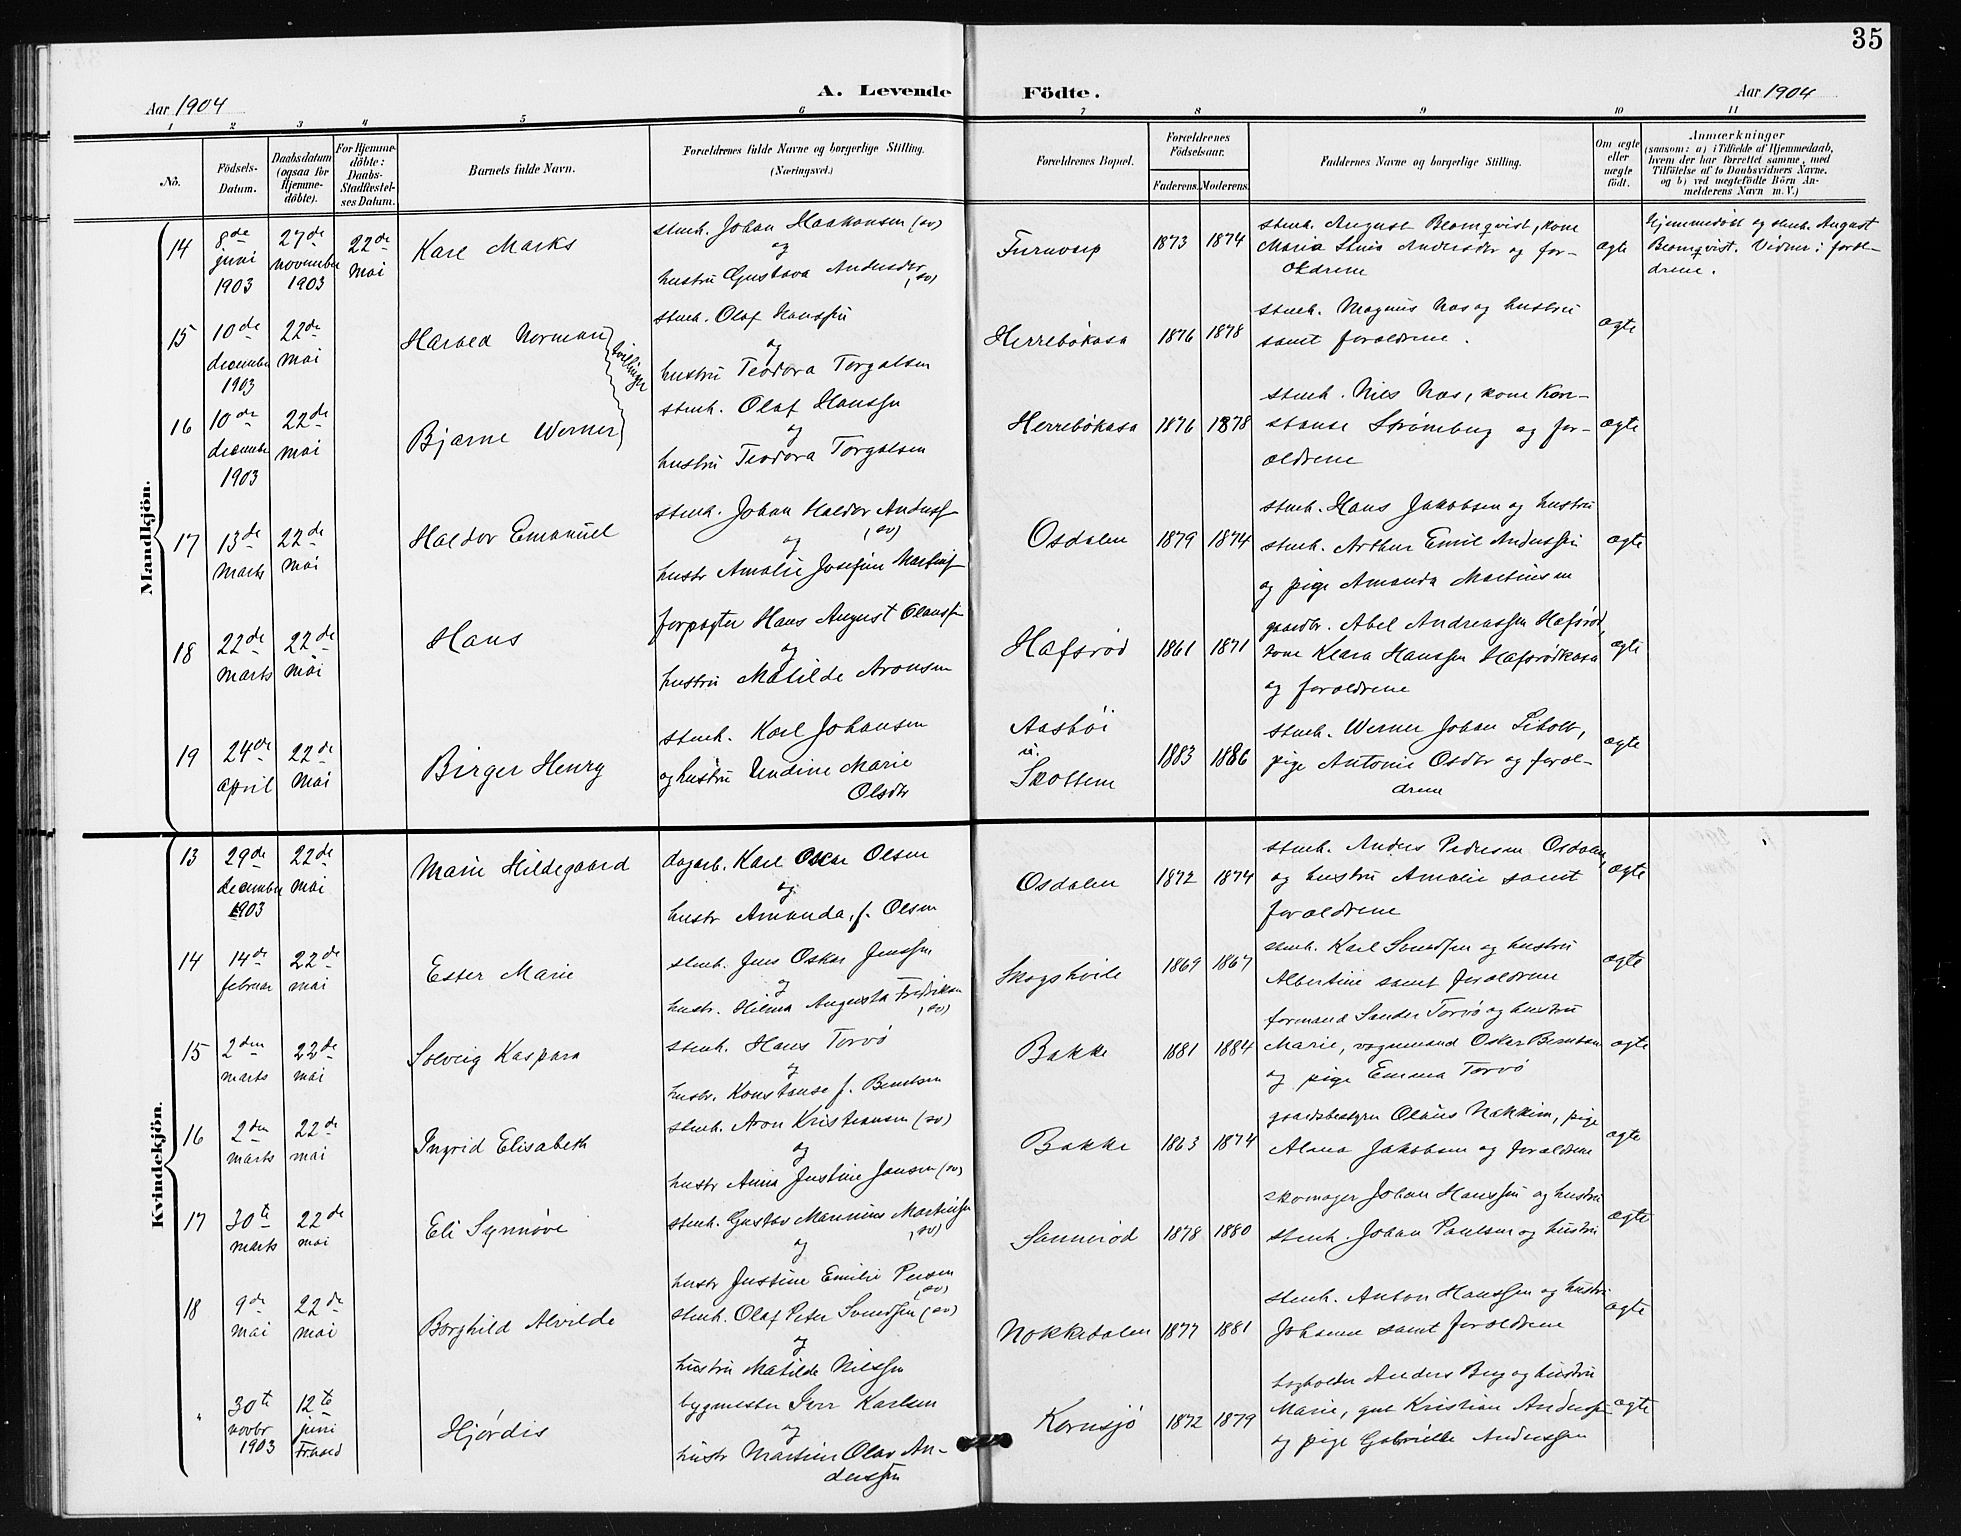 35
Aar 1904
A. Levende Födte.
Aar 1904
1 2 3 4 5 6 7 8 9 10 11
No.
Födsels-Datum.
Daabsdatum (ogsaa for Hjemme-döbte).
For Hjemme-döbte: Daabs-Stadfæstel-ses Datum.
Barnets fulde Navn.
Forældrenes fulde Navne og borgerlige Stilling.
(Næringsvei.)
Forældrenes Bopæl.
Forældrenes Födselsaar.
Faderens. Moderens.
Faddernes Navne og borgerlige Stilling.
Om ægte eller uægte födt.
Anmærkninger
(saasom: a) i Tilfælde af Hjemmedaab,
hvem der har forrettet samme, med
Tilföielse af to Daabsvidners Navne.
og b) ved uægtefödte Börn An-
melderens Navn m. V.)
Mandkjön.
14
8de juni 1903
27de november 1903
22de mai
Karl Marks
stenh. Johan Haakansen (sv)
og
hustru Gustava Andersdtr (sv)
1873 1874
stenh. August Blomqvist, kone
Maria Stina Andersdtr og for-
ældrene
ægte
Hjemmedöbt og stenh. August
Blomqvist. Vidner: foræl-
drene.
15
10de december 1903
22de mai
Harald Norman
tvillinger
stenh. Olaf Hanssen
og
hustru Teodora Torgalsen
Herrebökasa
1876 1878
stenh. Magnus Næs og hustru
samt forældrene.
ægte
16
10de december 1903
22de mai
Bjarne Werner
stenh. Olaf Hanssen
og
hustru Teodora Torgalsen
Herrebökasa
1876 1878
stenh. Nils Næs, kone Kon-
stanse Strømberg og for-
ældrene
ægte
17
13de marts
22de mai
Haldor Emanuel
stenh. Johan Haldor Anderss
(sv)
og
hustr Amalie Josefine Martins
Osdalen
1879 1874
stenh. Hans Jakobsen og hustru
stenh. Arthur Emil Anderssen
og pige Amanda Martinsen
ægte
18
22de marts
22de mai
Hans
forpagter Hans August Olaussen
og
hustru Matilde Aronsen
Hafsrød
1861 1871
gaardbr. Abel Andreassen Hafsrød,
kone Klara Hanssen Hafsrødkasa
og forældrene
ægte
19
24de april
22de mai
Birger Henry
stenh. Karl Johansen
og hustru Undine Marie
Olsdtr
Aasböi
u.
Skottene
1883 1886
stenh. Werner Johan Sibolt,
pige Antonie Osdtr og foræl-
drene
ægte
Kvindekjön.
13
29de december 1903
22de mai
Marie Hildegaard
dagarb. Karl Oscar Olsen
og
hustr Amanda, f. Olsen
Osdalen
1872 1874
stenh. Anders Pedersen Osdalen,
og hustru Amalie samt
forældrene
ægte
14
14de februar
22de mai
Ester Marie
stenh. Jens Oskar Jenssen
og
hustr. Hilma Augusta Fredriksen
(sv)
Skogshvile
1869 1867
stenh. Karl Svendsen og hustru
Albertine samt forældrene
ægte
15
2den marts
22de mai
Solveig Kaspara
stenh. Hans Torvø
og
hustr. Konstanse f. Berntsen
Bakke
1881 1884
formand Sander Torvø og hustru
Marie, vognmand Oskar Berntsen
og pige Emma Torvø
ægte
16
2den marts
22de mai
Ingrid Elisabeth
stenh. Aron Kristiansen (sv)
og
hustr Anna Justine Jansen (sv)
Bakke
1863 1874
gaardsbestyrer Olaus Nakkim, pige
Alena Jakobsen og forældrene
ægte
17
30te marts
22de mai
Eli Synnøve
stenh. Gustav Marinius Martinsen
(sv)
og
hustr Justine Emilie Persen
(sv)
Sannerød
1878 1880
skomager Johan Hanssen og hustru
stenh. Johan Paulsen og hustru
ægte
18
9de mai
22de mai
Borghild Alvilde
stenh. Olaf Peter Svendsen (sv)
og
hustru Matilde Nilssen
Nokkedalen
1877 1881
stenh. Anton Hanssen og hustru
Johanne samt forældrene
ægte
"
30te novbr 1903
12te juni
Hjørdis
bygmester Iver Karlsen
og
hustr Martine Olava An-
derssen
Kornsjø
1872 1879
bogholder Anders Berg og hustru
Marie, gut Kristian Anderssen
og pige Gabrielle Anderssen
ægte